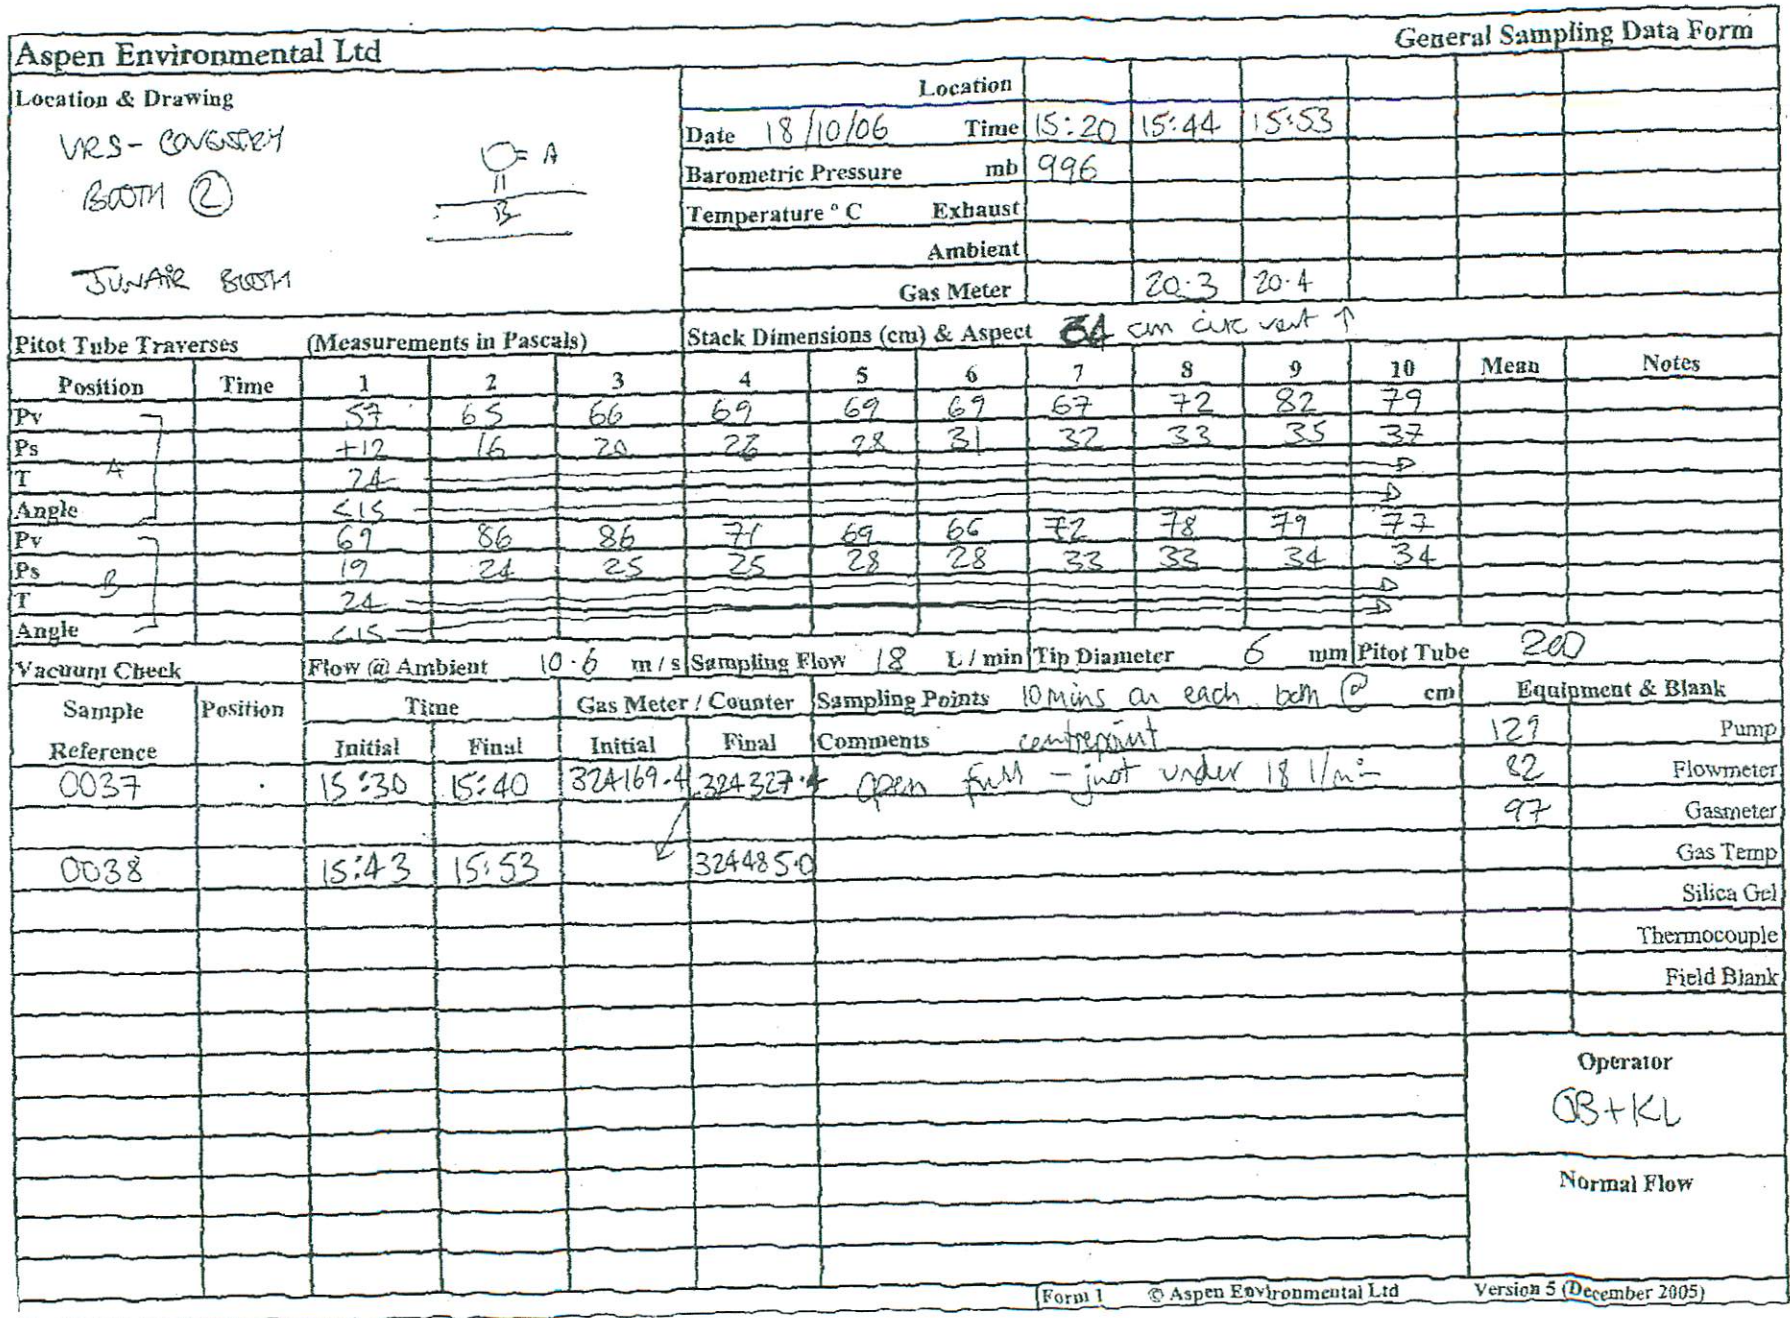 Aspen Environmental Ltd General Sampling Data Form
Location & Drawing
VRS - COVENTRY
BOOTH 2
JUNAIR BOOTH
A
B
Location
Date 18/10/06 Time 15:20 15:44 15:53
Barometric Pressure mb 996
Temperature ° C Exhaust
Ambient
Gas Meter 20.3 20.4
Pitot Tube Traverses (Measurements in Pascals) Stack Dimensions (cm) & Aspect cm circ vert ↑
Position Time 1 2 3 4 5 6 7 8 9 10 Mean Notes
Pv 57 65 66 69 69 69 67 72 82 79
Ps +12 16 20 28 31 32 33 35 37
A
T 24
Angle <15
Pv 69 86 86 71 69 66 72 78 79 77
Ps 19 24 25 25 28 28 33 33 34 34
B
T 24
Angle <15
Vacuum Check Flow @ Ambient 10.6 m / s Sampling Flow 18 L / min Tip Diameter 6 mm Pitot Tube 200
Sample Reference Position Time Gas Meter / Counter Sampling Points 10 mins on each both @ cm Equipment & Blank
Initial Final Initial Final Comments centrepoint 129 Pump
0037 15:30 15:40 324169.4 324327.4 open full - just under 18 l/min 82 Flowmeter
97 Gasmeter
0038 15:43 15:53 324485.0 Gas Temp
Silica Gel
Thermocouple
Field Blank
Operator
OB+KL
Normal Flow
Form 1 © Aspen Environmental Ltd Version 5 (December 2005)